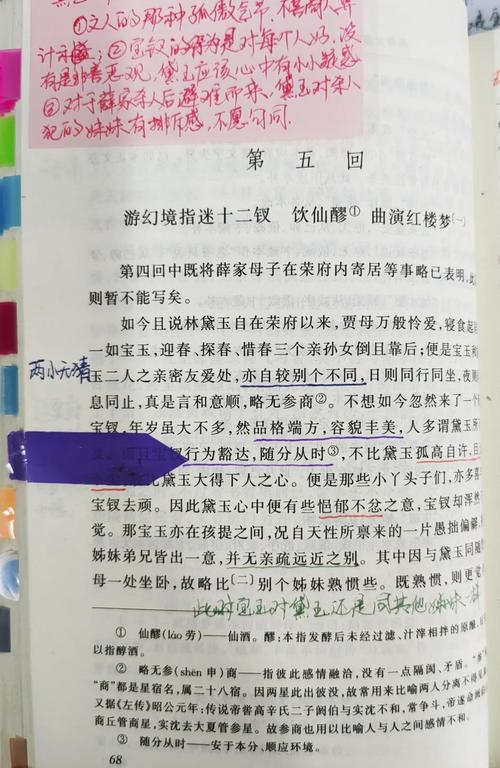 ①文人的那种孤傲气节,不善同人
计示盛;②宝钗的行为是对每个人好,没
有是非善恶观,黛玉应该心中有小小疑惑
③对于薛家杀人后避难而来,黛玉对杀人
犯的妹妹有排斥感,不愿过问.
第五回
游幻境指迷十二钗 饮仙醪① 曲演红楼梦[一]
第四回中既将薛家母子在荣府内寄居等事略已表明,此
则暂不能写矣。
如今且说林黛玉自在荣府以来,贾母万般怜爱,寝食起
一如宝玉,迎春、探春、惜春三个亲孙女倒且靠后;便是宝玉和
两小无猜
玉二人之亲密友爱处,亦自较别个不同,日则同行同坐,夜则
息同止,真是言和意顺,略无参商②。不想如今忽然来了一个
钗,年岁虽大不多,然品格端方,容貌丰美,人多谓黛玉所
行为豁达,随分从时③,不比黛玉孤高自许,目
比黛玉大得下人之心。便是那些小丫头子们,亦多喜
宝钗去顽。因此黛玉心中便有些悒郁不忿之意,宝钗却浑然
觉。那宝玉亦在孩提之间,况自天性所禀来的一片愚拙偏僻,
姊妹弟兄皆出一意,并无亲疏远近之别。其中因与黛玉同随
母一处坐卧,故略比[二]别个姊妹熟惯些。既熟惯,则更觉
此时宝玉对黛玉还是同其他姊妹一样
① 仙醪(láo 劳)——仙酒。醪:本指发酵后未经过滤、汁滓相拌的原酿,
以指醇酒。
② 略无参(shēn 申)商——指彼此感情融洽,没有一点隔阂、矛盾。“参”
“商”都是星宿名,属二十八宿。因两星此出彼没,故常用来比喻两人分离不得见
又据《左传》昭公元年:传说帝喾高辛氏二子阏伯与实沈不和,常争斗,帝遂命阏伯
商丘管商星,实沈去大夏管参星。故参商也用以比喻人与人之间感情不和。
③ 随分从时——安于本分、顺应环境。
68